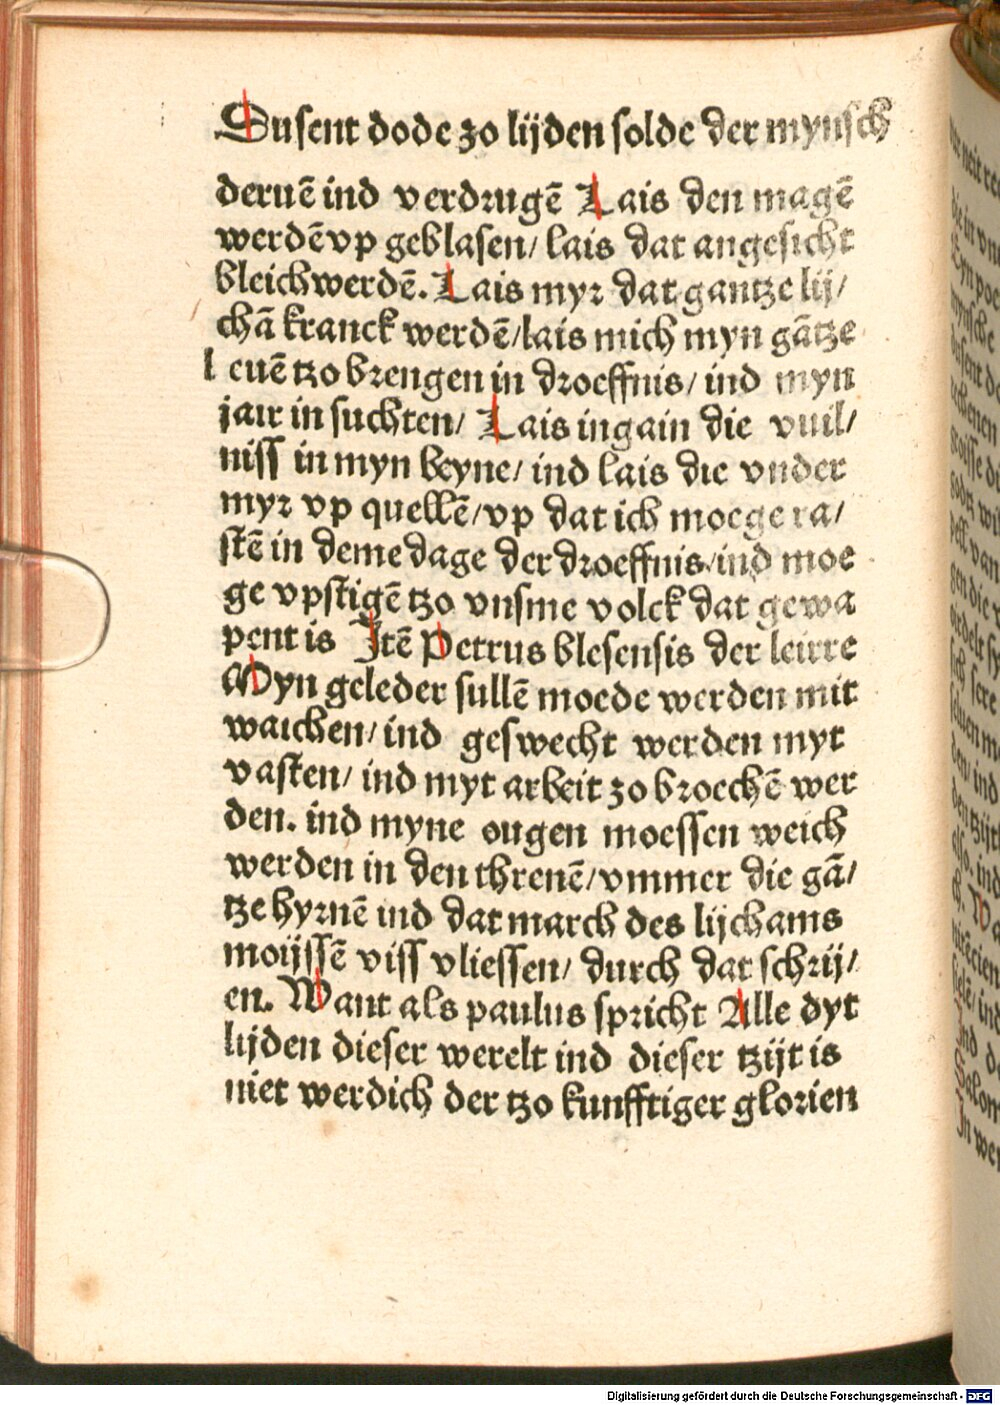 Dusent dode zo lijden solde der mynsch
deruē ind verdrugē Lais den magē
werdē vp geblasen/ lais dat angesicht
bleich werdē. Lais myr dat gantze lij/
chā kranck werdē/lais mich myn gātze
leuē tzo brengen in droeffnis/ ind myn
jair in suchten/ Lais ingain die vuil/
niss in myn beyne/ ind lais die vnder
myr vp quellē/vp dat ich moege ra/
stē in deme dage der droeffnis/ind moe
ge vpstigē tzo vnsme volck dat gewa
pent is Itē Petrus blesensis der leirre
Myn geleder sullē moede werden mit
waichen/ ind geswecht werden myt
vasten/ ind myt arbeit zo broechē wer
den. ind myne ougen moessen weich
werden in den threnē/vmmer die gā/
tze hyrnē ind dat march des lijchams
moijssē viss vliessen/ durch dat schrij/
en. Want als paulus spricht Alle dyt
lijden dieser werelt ind dieser tzijt is
niet werdich der tzo kunfftiger glorien
Digitalisierung gefördert durch die Deutsche Forschungsgemeinschaft - DFG